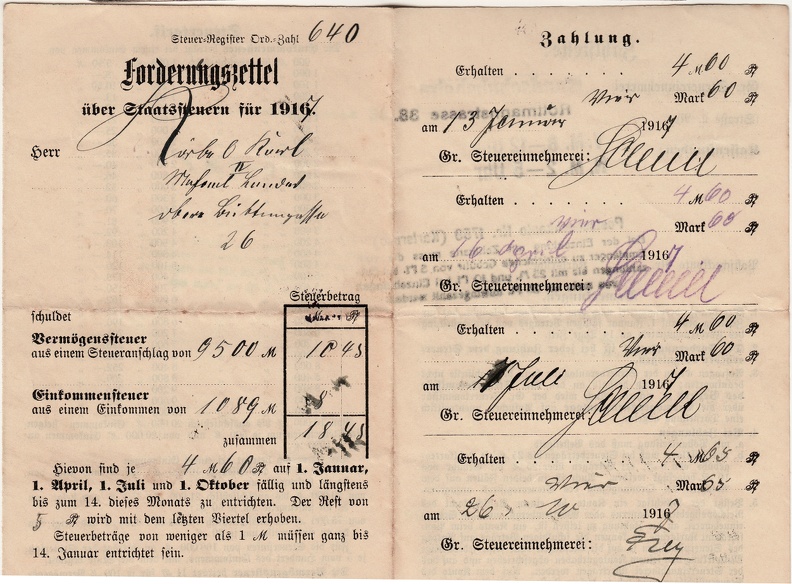 Steuer-Register Ord.-Zahl 640
Forderungszettel
über Staatssteuern für 1917.
Herr
26
Steuerbetrag
schuldet
Vermögenssteuer
aus einem Steueranschlag von 9500 M 10 45
Einkommensteuer
aus einem Einkommen von 1089 M 8
zusammen 18 45
Hievon sind je 4 M 60 ₰ auf 1. Januar,
1. April, 1. Juli und 1. Oktober fällig und längstens
bis zum 14. dieses Monats zu entrichten. Der Rest von
5 ₰ wird mit dem letzten Viertel erhoben.
Steuerbeträge von weniger als 1 M müssen ganz bis
14. Januar entrichtet sein.
Zahlung.
Erhalten . . . . . . . 4 M 60 ₰
Vier Mark 60 ₰
am 13 Januar 1917
Gr. Steuereinnehmerei:
Erhalten . . . . . . . 4 M 60 ₰
vier Mark 60 ₰
am 16 April 1917
Gr. Steuereinnehmerei:
Erhalten . . . . . . . 4 M 60
Vier Mark 60 ₰
am Juli 1917
Gr. Steuereinnehmerei:
Erhalten . . . . . . . 4 M 65
Vier Mark 65 ₰
am 26 10 1917
Gr. Steuereinnehmerei: Frey